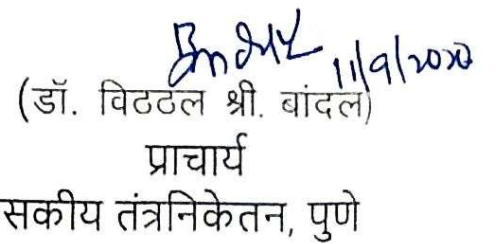 11/9/2020
(डॉ. विठठल श्री. बांदल)
प्राचार्य
सकीय तंत्रनिकेतन, पुणे